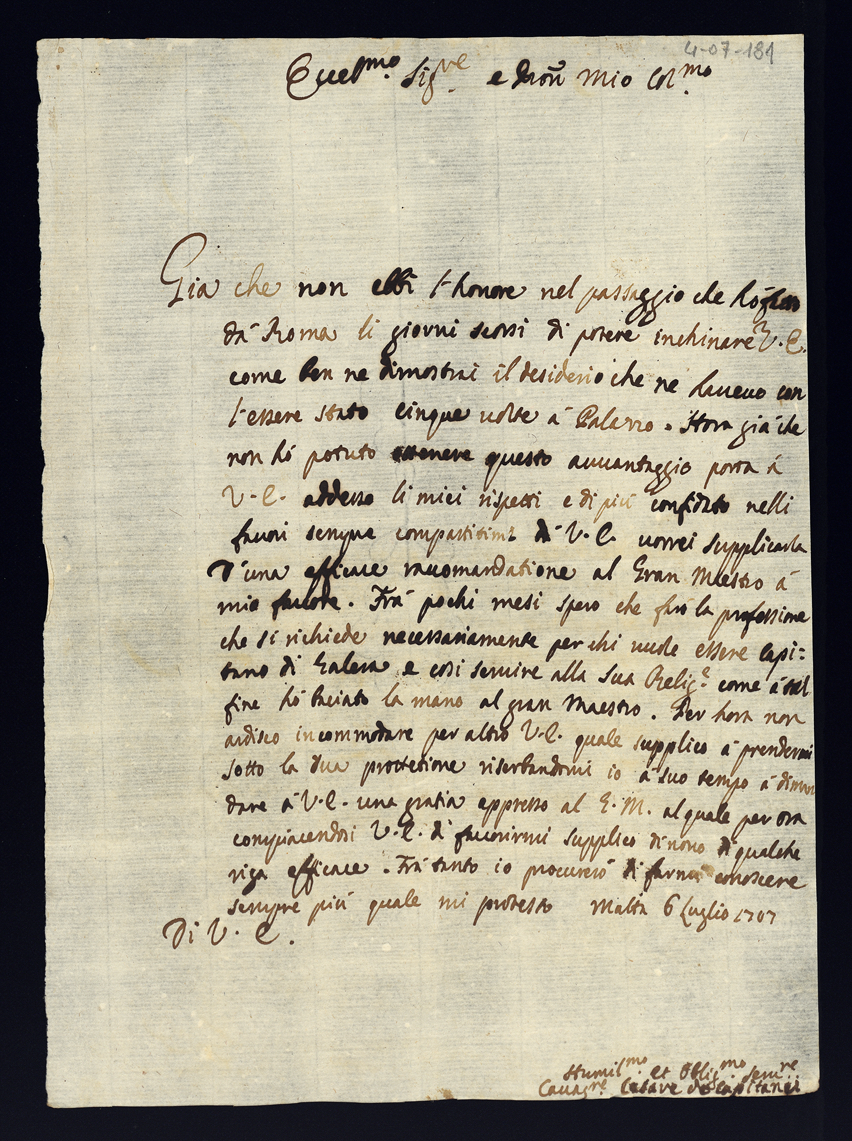 4-07-181
Eccel.mo Sig.re e Pron mio Col.mo
Gia che non ebbi l'honore nel passaggio che hò fatto
dà Roma li giorni scorsi di potere inchinare V. E.
come ben ne dimostrai il desiderio che ne haveuo con
l'essere stato cinque uolte à Palazzo. Hora già che
non hò potuto ottenere questo auuantaggio porta à
V. E. addesso li miei rispetti e di più confidato nelli
fauori sempre compartitimi dà V. E. uorrei supplicarla
d'una efficace raccomandatione al Gran Maestro à
mio fauore. Frà pochi mesi spero che farò la professione
che si richiede necessariamente per chi uuole essere Capi=
tano di Galera e così seruire alla sua Relig.e come à tal
fine hò baciato la mano al gran Maestro. Per hora non
ardisco incommodare per altro V. E. quale supplico à prendermi
sotto la sua protettione riserbandomi io à suo tempo à diman
dare à V. E. una gratia appresso al G. M. al quale per ora
compiacendosi V. E. di fauorirmi supplico di nouo di qualche
riga efficace. Frà tanto io procurerò di farmi conoscere
sempre più quale mi protesto Malta 6 Luglio 1707
Di V. E.
Humil.mo et Oblig.mo Seru.re
Cauag.re Cesare de Capitanei